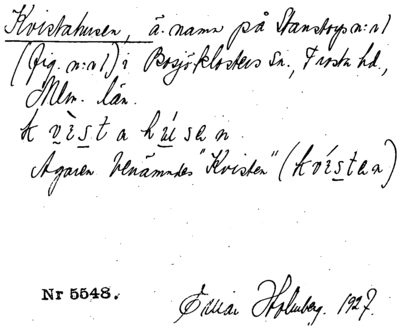 Kvistahusen, ä. namn på Stanstorps n:o 1
(fig. n:o 1) i Bosjöklosters sn., Frosta hd.,
Mlm. län.
kvìstahúsen
Ägaren benämndes "Kvisten" (kvístən)
Nr 5548.
Einar Holmberg. 1927.